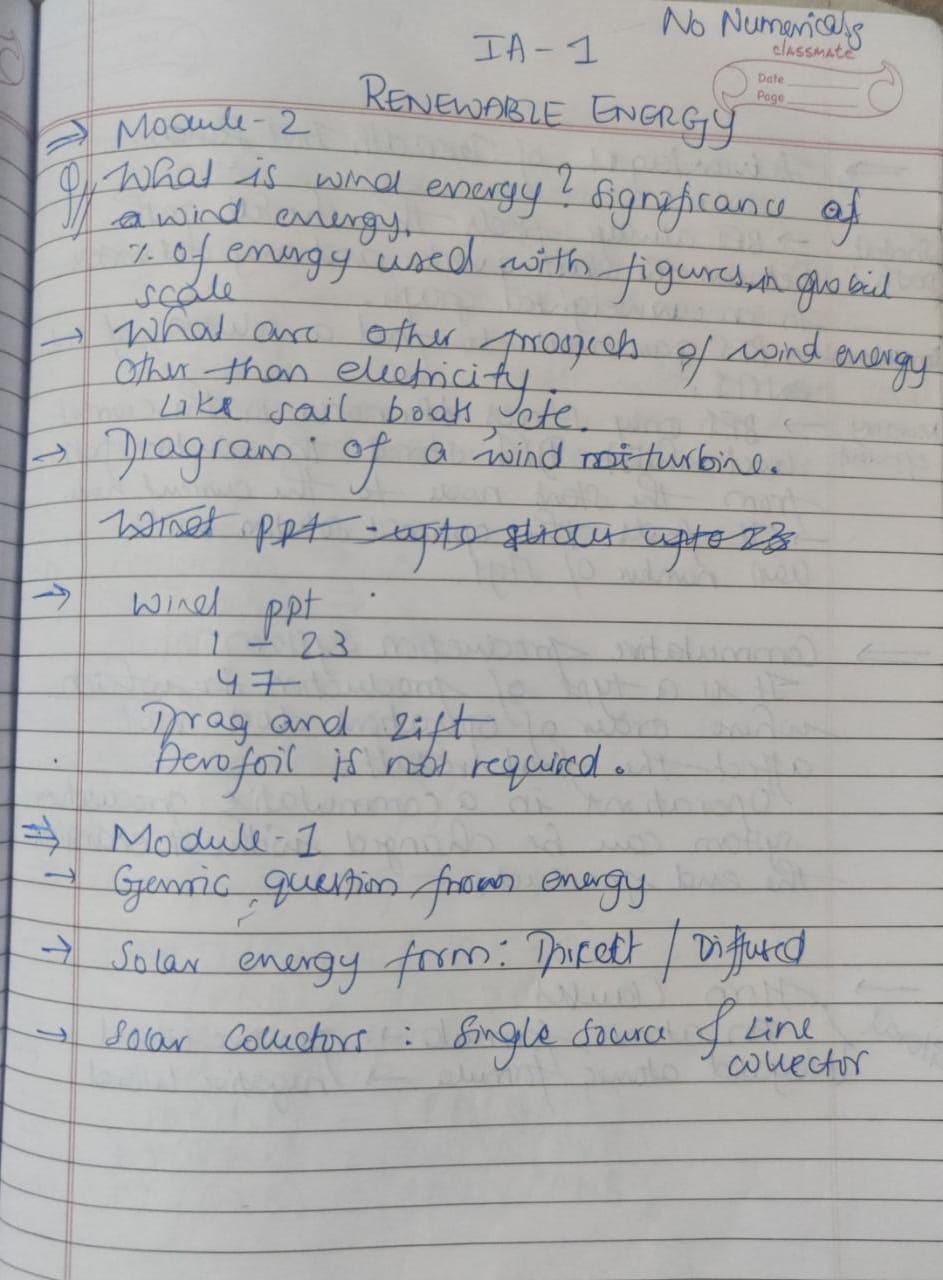 No Numericals
IA-1
classmate
Date
Page
RENEWABLE ENERGY
⇒ Module-2
Q// What is wind energy? Significance of
wind energy.
% of energy used with figures, in global
scale
→ What are other of wind energy
other than electricity.
Like sail boats, etc.
→ Diagram of a wind turbine.
Wind ppt - upto upto 23
→ Wind ppt
1 - 23
47
Drag and Lift
Aerofoil is not required.
⇒ Module-1
→ Generic question from energy
→ Solar energy form: Direct / Diffused
→ Solar Collectors : Single Source & Line
collector